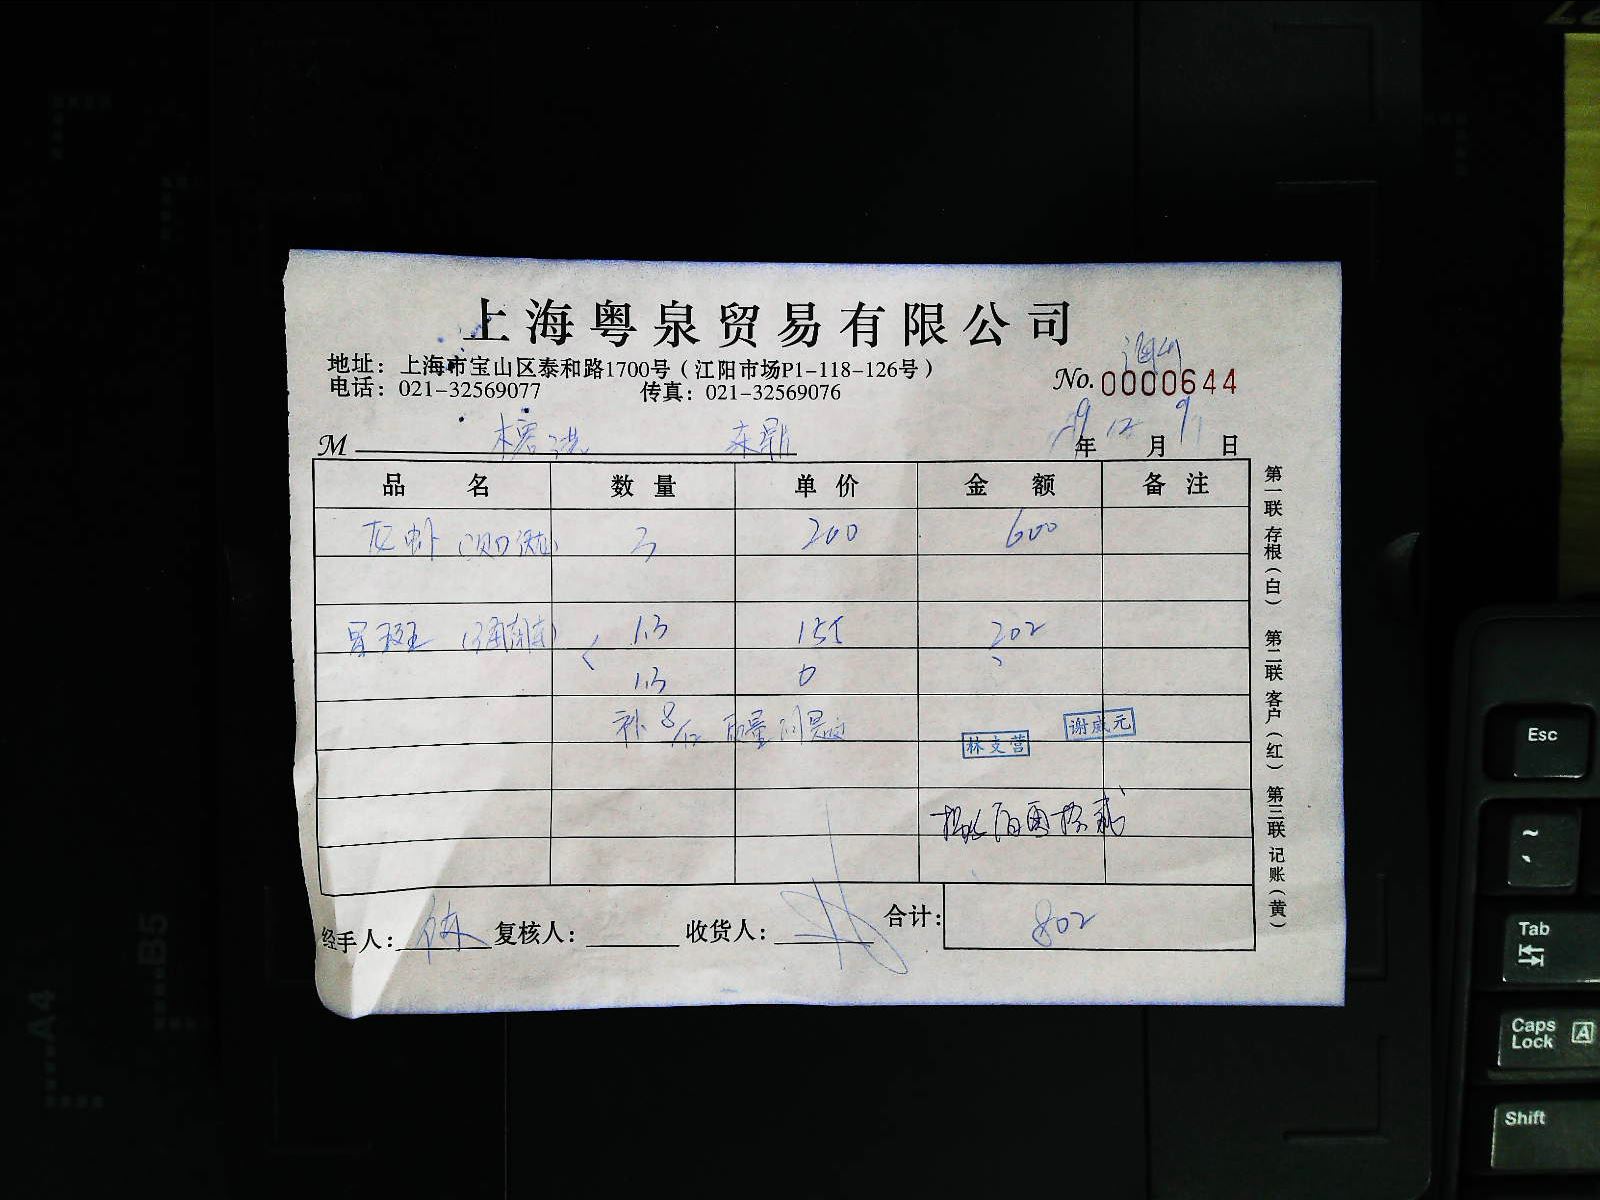 上海粤泉贸易有限公司
地址：上海市宝山区泰和路1700号（江阳市场P1-118-126号）
电话：021-32569077 传真：021-32569076
No.0000644
M 年 12 月 9 日
品名 数量 单价 金额 备注
龙虾 3 200 600
星斑 1.3 155 202
1.3 0
补 8/12 质量问题
谢威元
林文营
经手人： 林 复核人： 收货人： 合计： 802
第一联存根（白） 第二联客户（红） 第三联记账（黄）
Esc
~
Tab
Caps Lock A
Shift
B5
A4